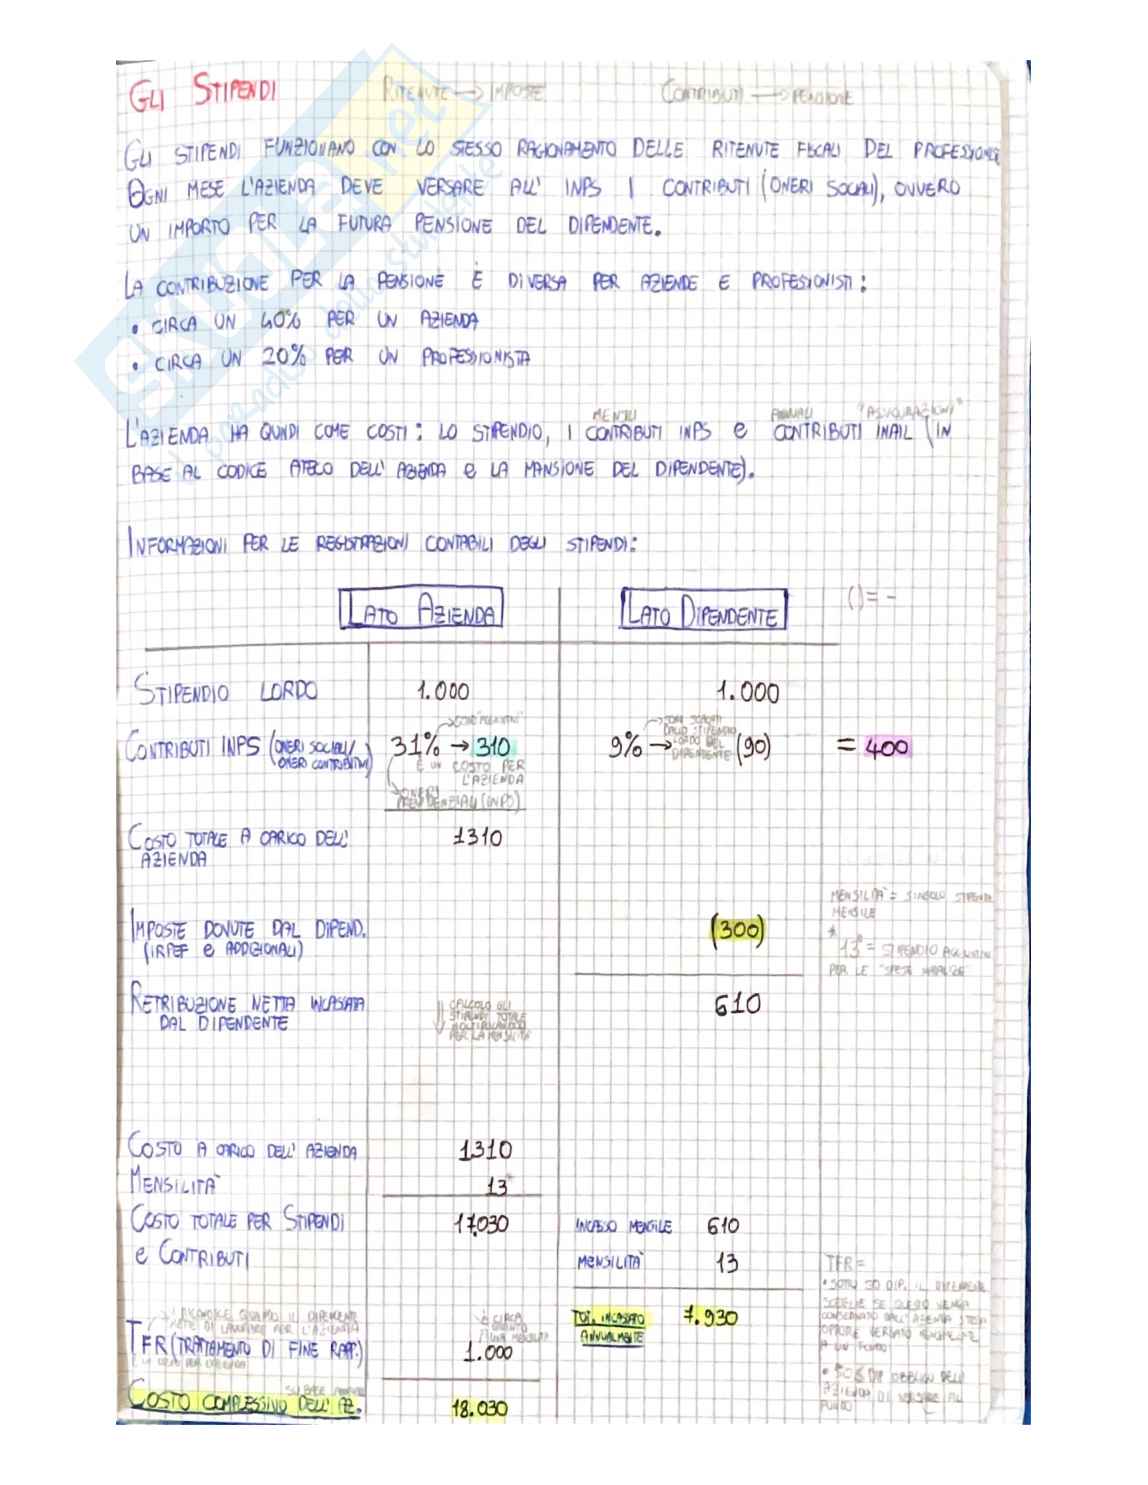 GLI STIPENDI
RITENUTE → IMPOSTE
CONTRIBUTI → PENSIONE
GLI STIPENDI FUNZIONANO CON LO STESSO RAGIONAMENTO DELLE RITENUTE FISCALI DEL
OGNI MESE L'AZIENDA DEVE VERSARE ALL' INPS I CONTRIBUTI (ONERI SOCIALI), OVVERO
UN IMPORTO PER LA FUTURA PENSIONE DEL DIPENDENTE.
LA CONTRIBUZIONE PER LA PENSIONE È DIVERSA PER AZIENDE E PROFESSIONISTI:
• CIRCA UN 40% PER UN AZIENDA
• CIRCA UN 20% PER UN PROFESSIONISTA
MENSILI ANNUALI "ASSICURAZIONI"
L'AZIENDA HA QUINDI COME COSTI: LO STIPENDIO, I CONTRIBUTI INPS e CONTRIBUTI INAIL (IN
BASE AL CODICE ATECO DELL' AZIENDA e LA MANSIONE DEL DIPENDENTE).
INFORMAZIONI PER LE REGISTRAZIONI CONTABILI DEGLI STIPENDI:
LATO AZIENDA
LATO DIPENDENTE
() = -
STIPENDIO LORDO 1.000 1.000
CONTRIBUTI INPS (ONERI SOCIALI/
ONERI CONTRIBUTIVI)
31% → 310
È UN COSTO PER
L'AZIENDA
ONERI
PREVIDENZIALI (INPS)
9% → (90)
SONO SCALATI
DALLO STIPENDIO
LORDO DEL
DIPENDENTE
= 400
COSTO TOTALE A CARICO DELL'
AZIENDA
1310
MENSILITÀ = SINGOLO STIPENDIO
MENSILE
IMPOSTE DOVUTE DAL DIPEND.
(IRPEF e ADDIZIONALI)
(300)
* 13° = STIPENDIO AGGIUNTIVO
PER LE "SPESE NATALIZIE"
RETRIBUZIONE NETTA INCASSATA
DAL DIPENDENTE
610
CALCOLO GLI
STIPENDI TOTALE
MOLTIPLICANDO
PER LA MENSILITÀ
COSTO A CARICO DELL' AZIENDA 1310
MENSILITÀ 13
COSTO TOTALE PER STIPENDI
e CONTRIBUTI
17.030
INCASSO MENSILE 610
MENSILITÀ 13
TOT. INCASSATO
ANNUALMENTE
7.930
È CIRCA
UNA MENSILITÀ
TFR (TRATTAMENTO DI FINE RAPP.) 1.000
È UN COSTO PER L'AZIENDA
SU BASE ANNUALE
COSTO COMPLESSIVO DELL' AZ. 18.030
TFR =
• SOTTO 50 DIP. IL DIPENDENTE
SCEGLIE SE QUESTO VENGA
CONSERVATO DALL'AZIENDA STESSA
OPPURE VERSATO
A UN FONDO
• 50 DIP OBBLIGO DELL'
AZIENDA DI VERSARE AL
FONDO
SKUOLA.net